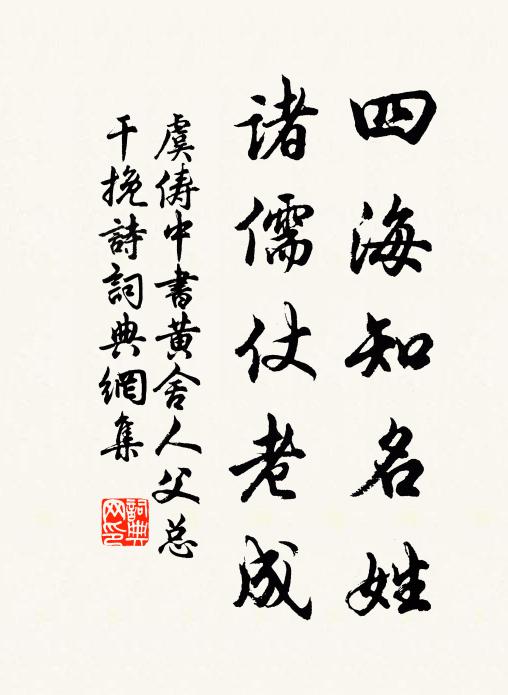 四海知名姓
諸儒仗老成
虞儔中書黄舍人父总
干挽詩詞典網集
詞典网印